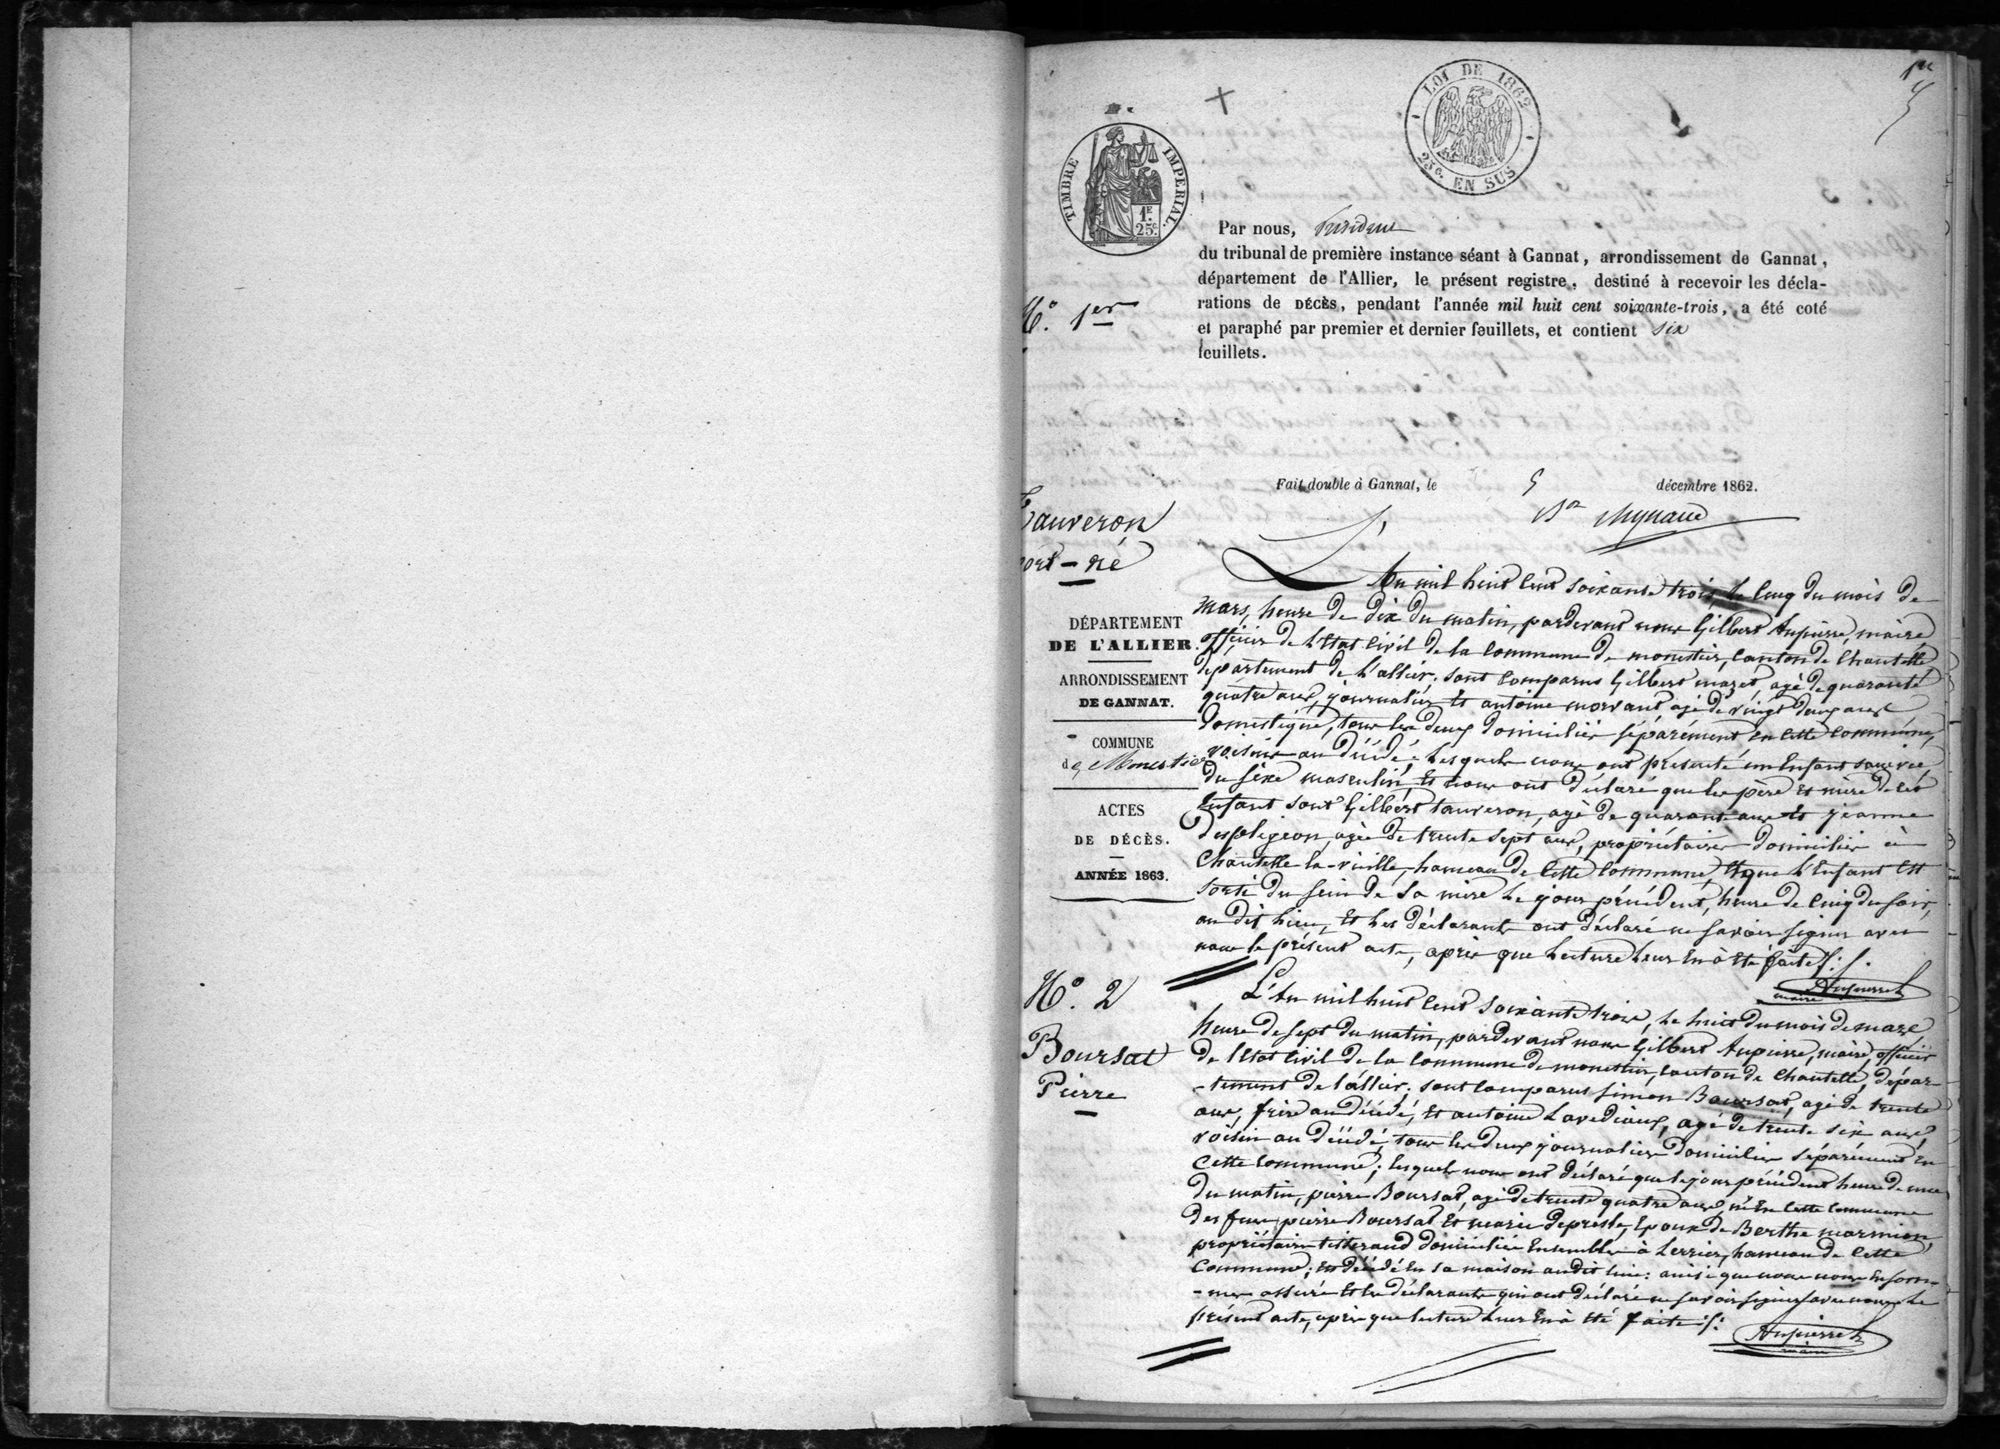 1er
LOI DE 1862
25c. EN SUS
TIMBRE IMPERIAL.
1F.
25c.
Par nous, Président
du tribunal de première instance séant à Gannat, arrondissement de Gannat,
département de l'Allier, le présent registre, destiné à recevoir les décla-
rations de DÉCÈS, pendant l'année mil huit cent soixante-trois, a été coté
et paraphé par premier et dernier feuillets, et contient six
feuillets.
Fait double à Gannat, le 5 décembre 1862.
N.° 1er
Tauveron
mort-né
DÉPARTEMENT
DE L'ALLIER.
ARRONDISSEMENT
DE GANNAT.
COMMUNE
de Monestier
ACTES
DE DÉCÈS.
ANNÉE 1863.
L'An mil huit cent soixante trois, le cinq du mois de
mars, heure de dix du matin, pardevant nous Gilbert Aupierre, maire
officier de l'Etat civil de la commune de monestier, canton de Chantelle
département de L'allier; sont comparus Gilbert mazet, agé de quarante
quatre ans, journalier Et antoine morvant agé de vingt deux ans
Domestique, tous les deux domiciliés séparément en cette commune,
voisins au décédé, Lesquels nous ont présenté un Enfant sans vie
du sexe masculin, Et nous ont déclaré que les père Et mère de cet
Enfant sont Gilbert tauveron, agé de quarante ans Et jeanne
Despligeon, agée de trente sept ans, propriétaires domiciliés à
Chantelle-la-vieille, hameau de Cette Commune, Et que L'Enfant Est
sorti du sein de Sa mère Le jour précédent, heure de cinq du soir,
au dit lieu, Et Les déclarants ont déclaré ne savoir signer avec
nous le présent acte, après que Lecture Leur En à Eté faite ./.
Aupierre
maire
N.° 2
Boursat
Pierre
L'An mil huit Cent Soixante trois, Le huit du mois de mars
heure de sept du matin, pardevant nous Gilbert Aupierre, maire, officier
de l'Etat Civil de la Commune de monestier, canton de Chantelle, dépar-
-tement de l'allier; sont comparus Simon Boursat, agé de trente
ans, frère au décédé, Et antoine Lavediaux, agé de trente six ans
voisin au décédé, tous les deux journaliers domiciliés séparément En
Cette Commune; Lesquels nous ont déclaré que le jour précédent heure de une
du matin, pierre Boursat, agé de trente quatre ans, né En Cette Commune
des feux pierre Boursat Et marie depresle, Epoux de Berthe marmion,
propriétaire tisserand domiciliés Ensemble à Lerrier, hameau de Cette
Commune, Est décédé En sa maison au dit lieu: ainsi que nous nous En som-
-mes assuré Et les déclarants qui ont déclaré ne savoir signer avec nous Le
présent acte, après que lecture Leur En à été faite ./.
Aupierre
maire